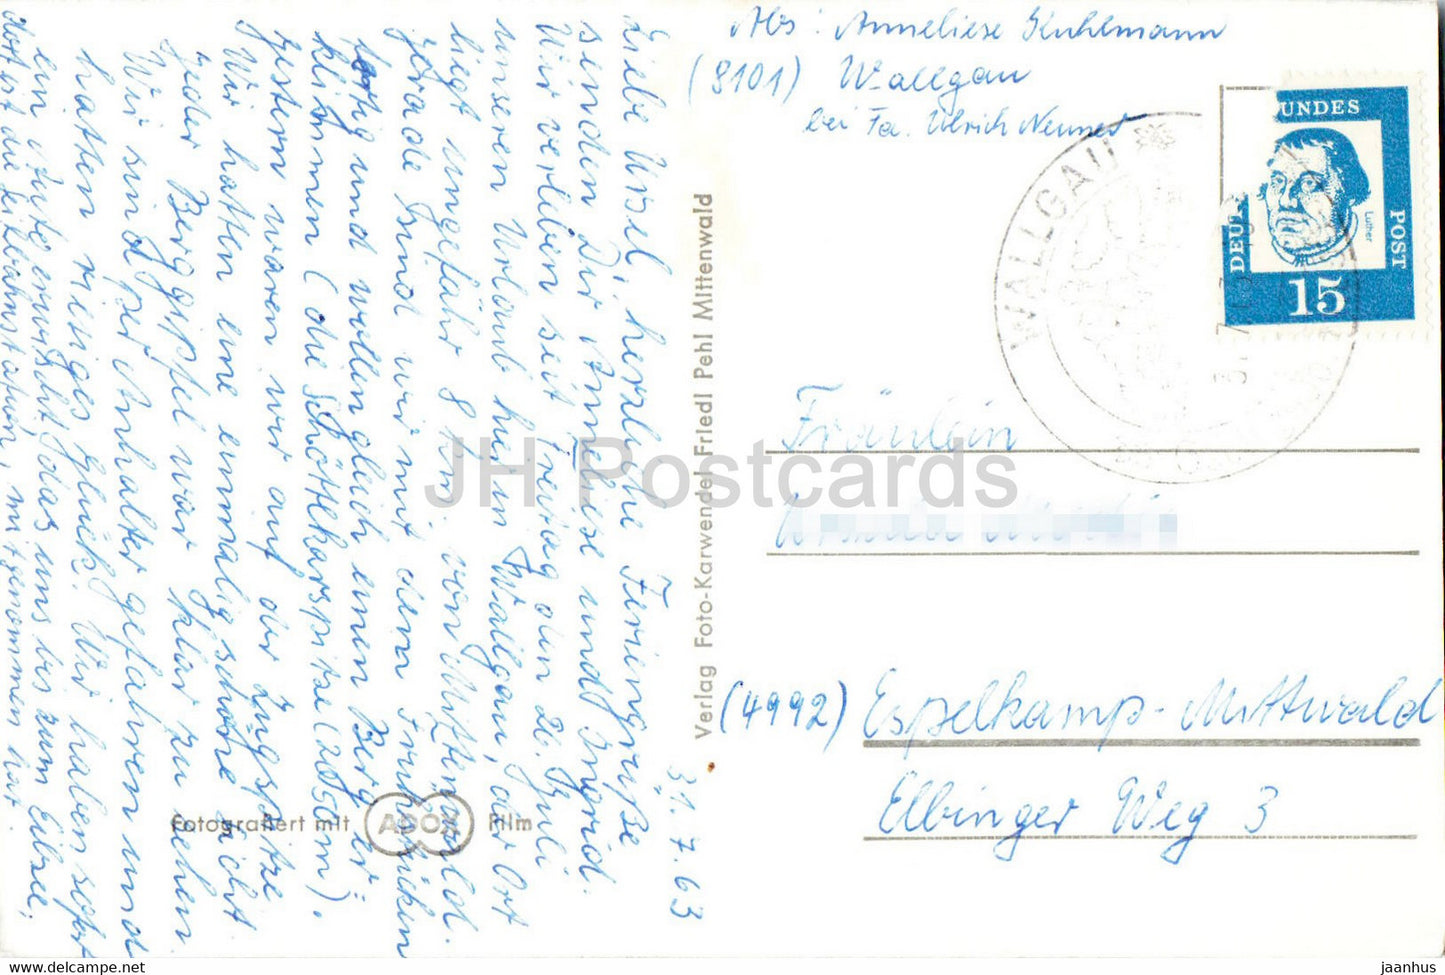 Abs: Anneliese Kuhlmann
(8101) Wallgau
bei Fa. Ulrich Neuner
31.7.63
Liebe Ursel, herzliche Feriengrüße
senden Dir Anneliese und Ingrid.
Wir verleben seit Freitag den 26. Juli
unseren Urlaub hier in Wallgau, der Ort
liegt ungefähr 8 km von Mittenwald.
Gerade sind wir mit dem Frühstücken
fertig und wollen gleich einen Berg er=
klimmen (die Schöttelkarspitze (2050m).
Gestern waren wir auf der Zugspitze
Wir hatten eine einmalig schöne Sicht
jeder Berggipfel war klar zu sehen
Wir sind per Anhalter gefahren und
hatten riesiges Glück. Wir haben sofort
ein Auto erwischt, das uns bis zum Eibsee,
dort ist die Seilbahnstation, mitgenommen hat.
Fotografiert mit ADOX Film
Verlag Foto-Karwendel Friedl Pehl Mittenwald
WALLGAU
DEU BUNDES POST
Luther
15
Fräulein
(4992) Espelkamp-Mittwald
Elbinger Weg 3
JH Postcards
https://www.jhpostcard.com
jaanhus